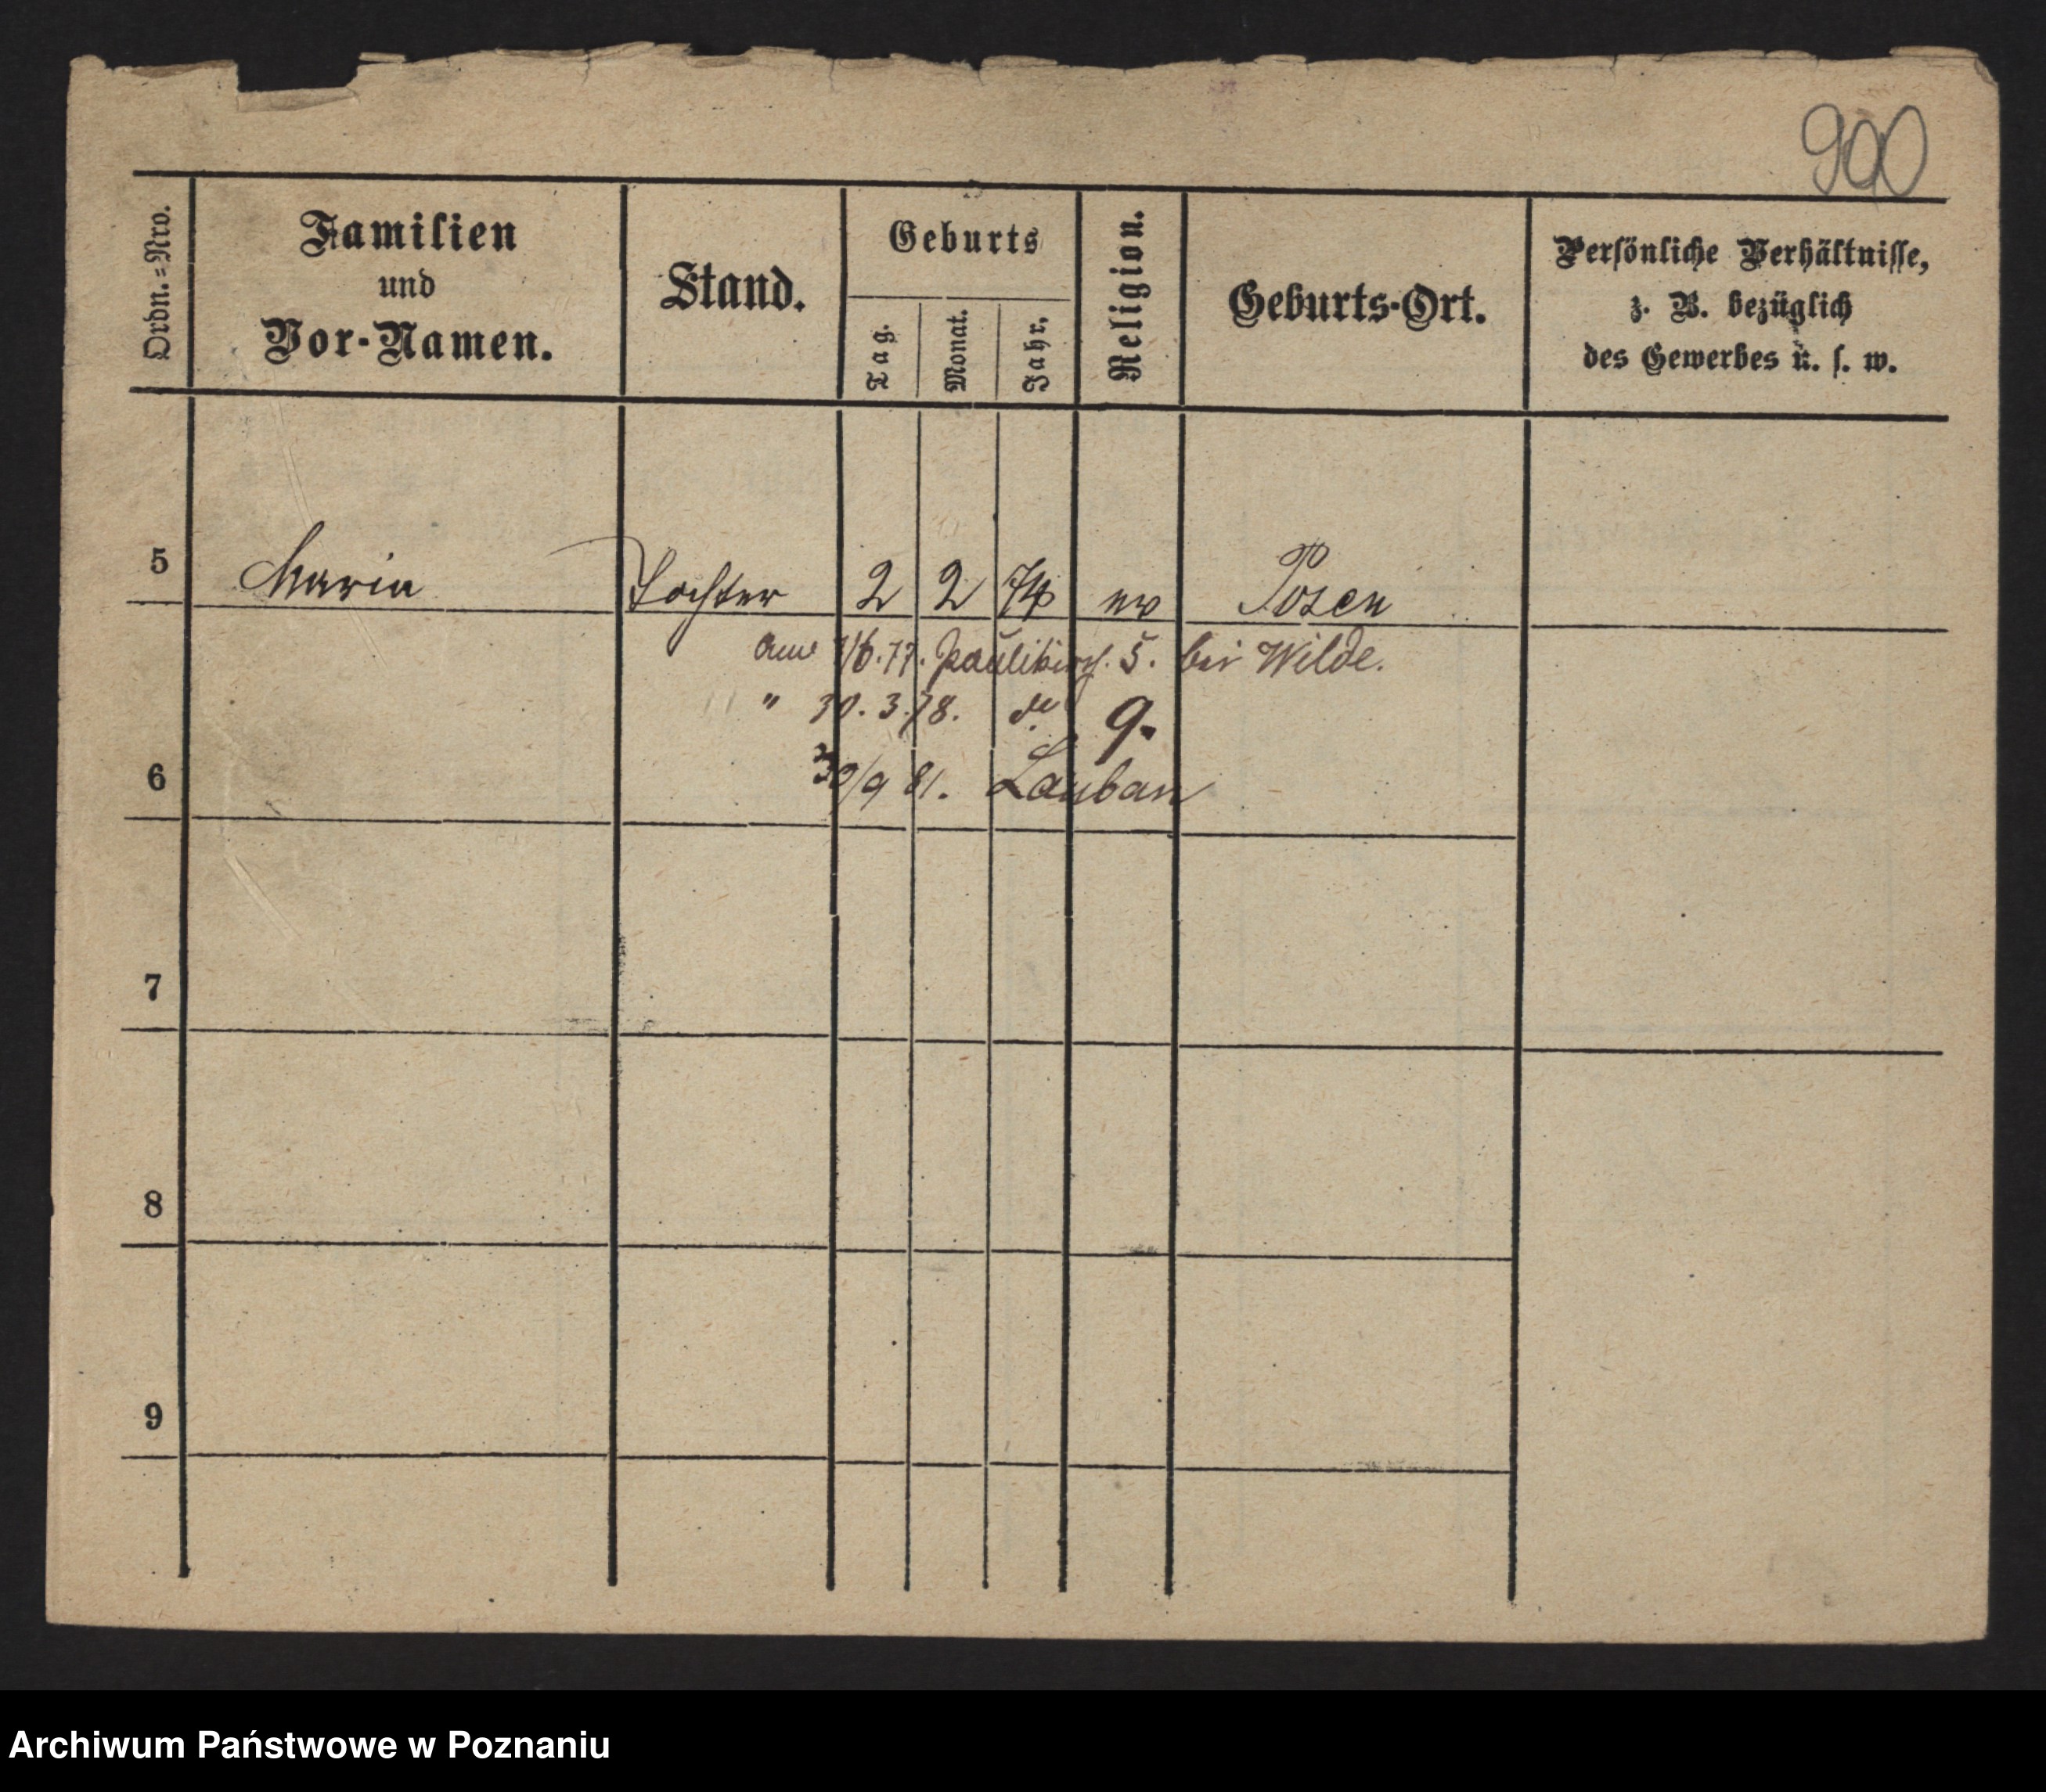 900
Ordn.=Nro.
Familien
und
Vor-Namen.
Stand.
Geburts
Tag.
Monat.
Jahr.
Religion.
Geburts-Ort.
Persönliche Verhältnisse,
z. B. bezüglich
des Gewerbes u. s. w.
5 Maria Tochter 2 2 74 ev Posen
am 1/6.77. Paulikirch. 5. bei Wilde.
" 30. 3.78. do 9.
/9 81. Lauban
6
7
8
9
Archiwum Państwowe w Poznaniu